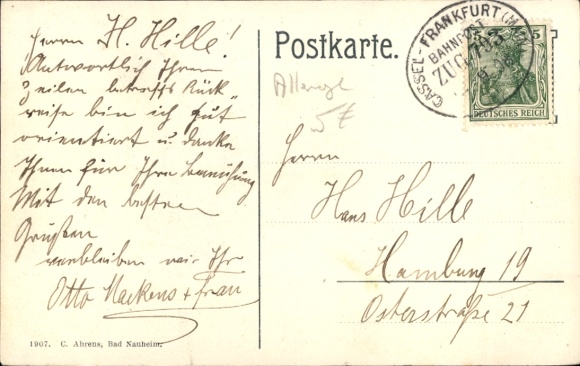 Herrn H. Hille!
Antwortlich Ihren
Zeilen betreffs Rück-
reise bin ich gut
orientiert u. danke
Ihnen für Ihre Bemühung
Mit den besten
Grüßen
verbleiben wir Ihr
Otto Mackens + Frau
1907. C. Ahrens, Bad Nauheim.
Postkarte.
CASSEL - FRANKFURT (M.)
BAHNPOST
ZUG 703
5
DEUTSCHES REICH
5 €
Herrn
Hans Hille
Hamburg 19
Osterstraße 21